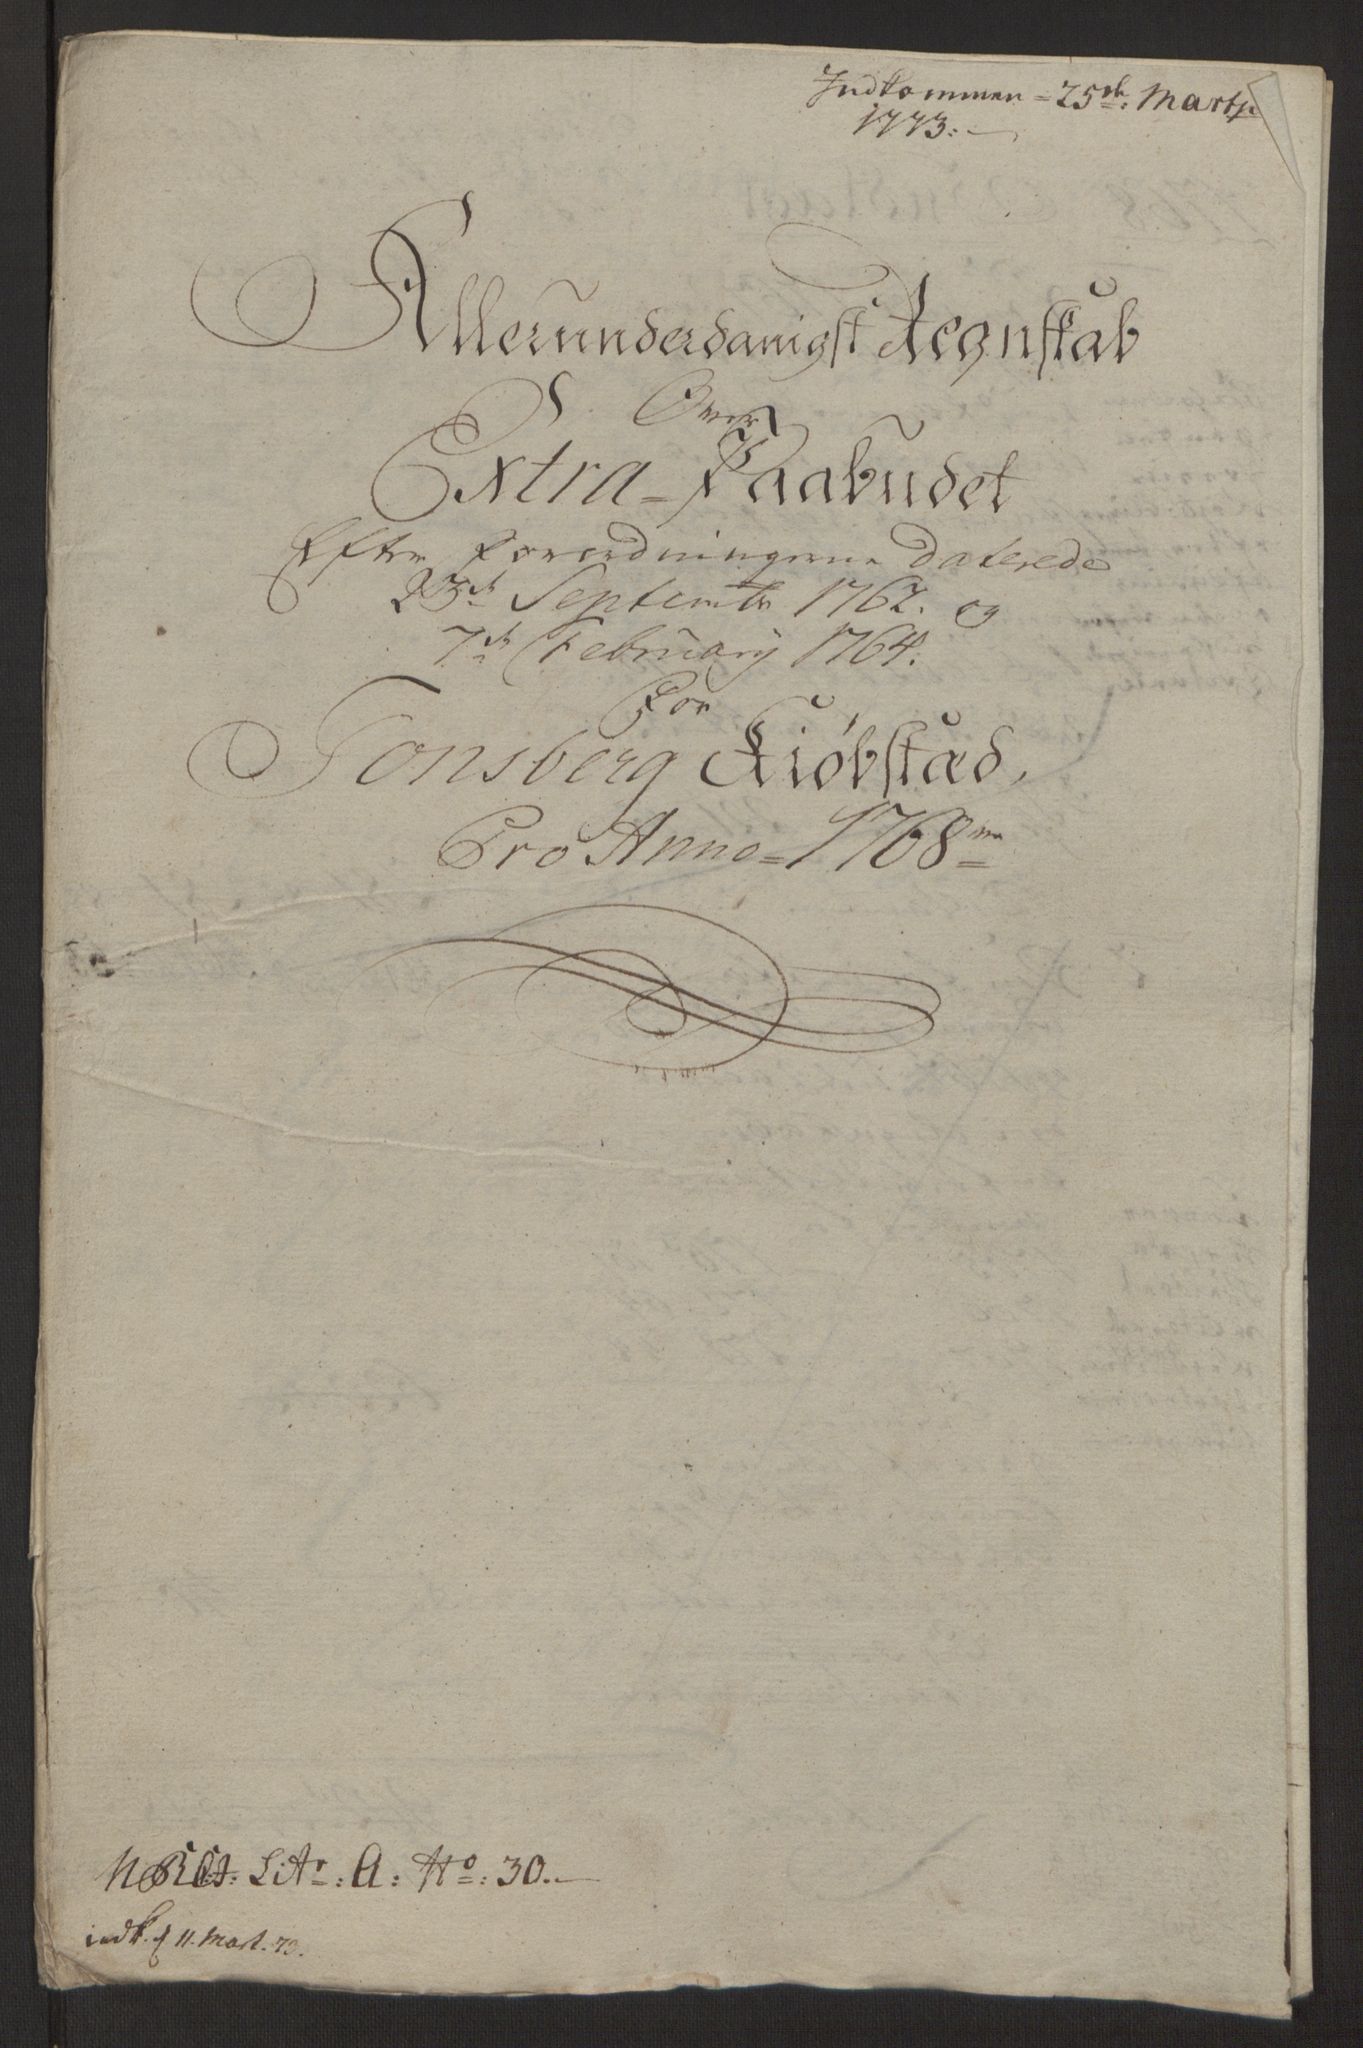 Indkommen = 25de: Martii
1773:
Allerunderdanigst Regnskab
Over
Extra-Paabudet
Efter Forordningerne daterede
23de Septembr 1762. og
7de February 1764.
For
Tonsberg Kiøbstad,
Pro Anno = 1768=
Litr: A: No: 30.
indk. d 11. Mart. 73.